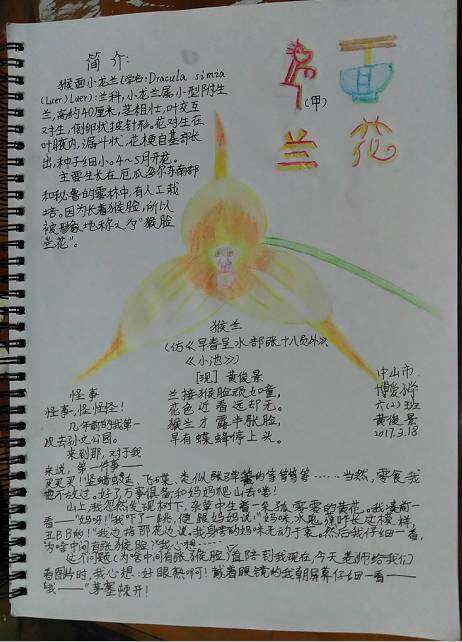 简介:
猴面小龙兰(学名:Dracula simia
(Luer)Luer):兰科,小龙兰属,小型附生
兰,高约40厘米,茎粗壮,叶交互
对生,倒卵状披针形。花对生在
叶腋内,漏斗状,花梗自基部长
出,种子细小。4~5月开花。
主要生长在厄瓜多尔东南部
和秘鲁的雾林中,有人工栽
培。因为长着猴脸,所以
被形象地称之为"猴脸
兰花"。
(甲)
面
兰花
猴兰
(仿《早春呈水部张十八员外》、
《小池》)
[现] 黄俊景
兰接猴脸顽如童,
花色近看远却无。
猴兰才露半耿脸,
早有蝶蜂停上头。
中山市
博爱小学
六(2)班
黄俊景
2017.3.18
怪事
怪事,怪怪怪!
几年前的我第一
次去孙文公园。
来到那,对于我
来说,第一件事——
买买买!竖蜻蜓、飞碟、类似
等等等等……当然,零食我
也不放过。好了万事俱备和妈妈爬山去喽!
山上,我忽然发现树下,杂草中生着一朵孤零零的黄花。我凑前一
看——"妈呀!"我吓了一跳,便跟妈妈说:
我边指那花边说。我身旁的妈妈无动于衷。然后我仔细一看,
为啥中间有张猴脸?我心想……
这个问题(为啥中间有张猴脸)直陪到我现在,今天老师给我们
看图片时,我心想:好眼熟啊!戴着眼镜的我朝屏幕仔细一看——
"哦——"茅塞顿开!